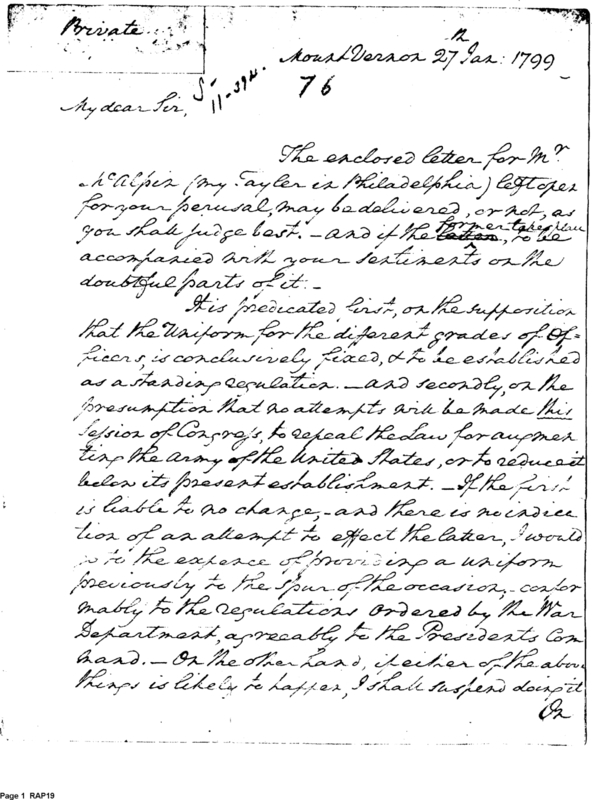 Private
Mount Vernon 27th Jan: 1799
76
11-394.
My dear Sir,
The enclosed letter for Mr.
McAlpin (my Tayler in Philadelphia) left open
for your perusal, may be delivered, or not, as
you shall judge best. - and if the former takes place, to be
accompanied with your sentiments on the
doubtful parts of it. -
It is predicated first, on the supposition
that the Uniform for the different grades of Of=
ficers, is conclusively fixed, & to be established
as a standing regulation. - and secondly, on the
presumption that no attempts will be made this
Session of Congress, to repeal the Law for augmen
ting the Army of the United States, or to reduce it
below its present establishment. - If the first
is liable to no change, - and there is no indica
tion of an attempt to effect the latter, I would
go to the expence of providing a uniform
previously to the spur of the occasion, - confor
mably to the regulations ordered by the War
Department, agreeably to the Presidents Com
mand. - On the other hand, if either of the above
things is likely to happen, I shall suspend doing it
On
Page 1 RAP19